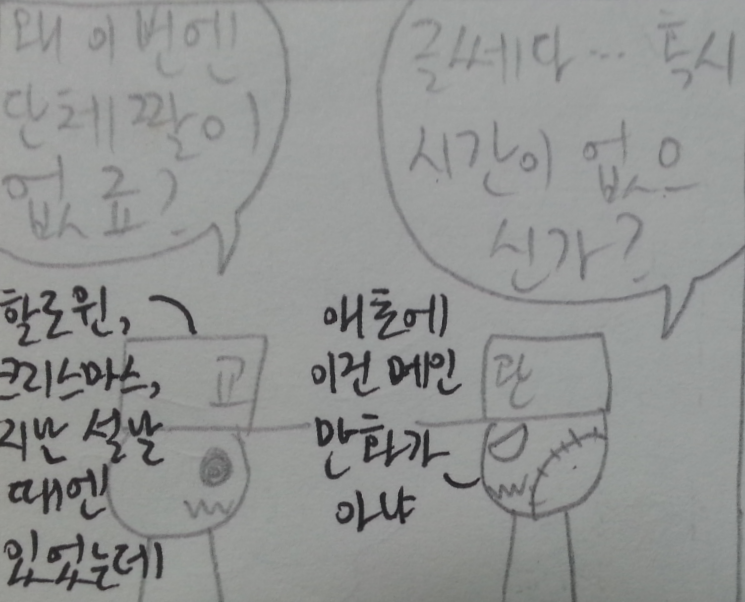 왜 이번엔
단체짤이
없죠?
글쎄다... 혹시
시간이 없으
신가?
할로윈,
크리스마스,
지난 설날
때엔
있었는데
애초에
이건 메인
만화가
아냐
교
관